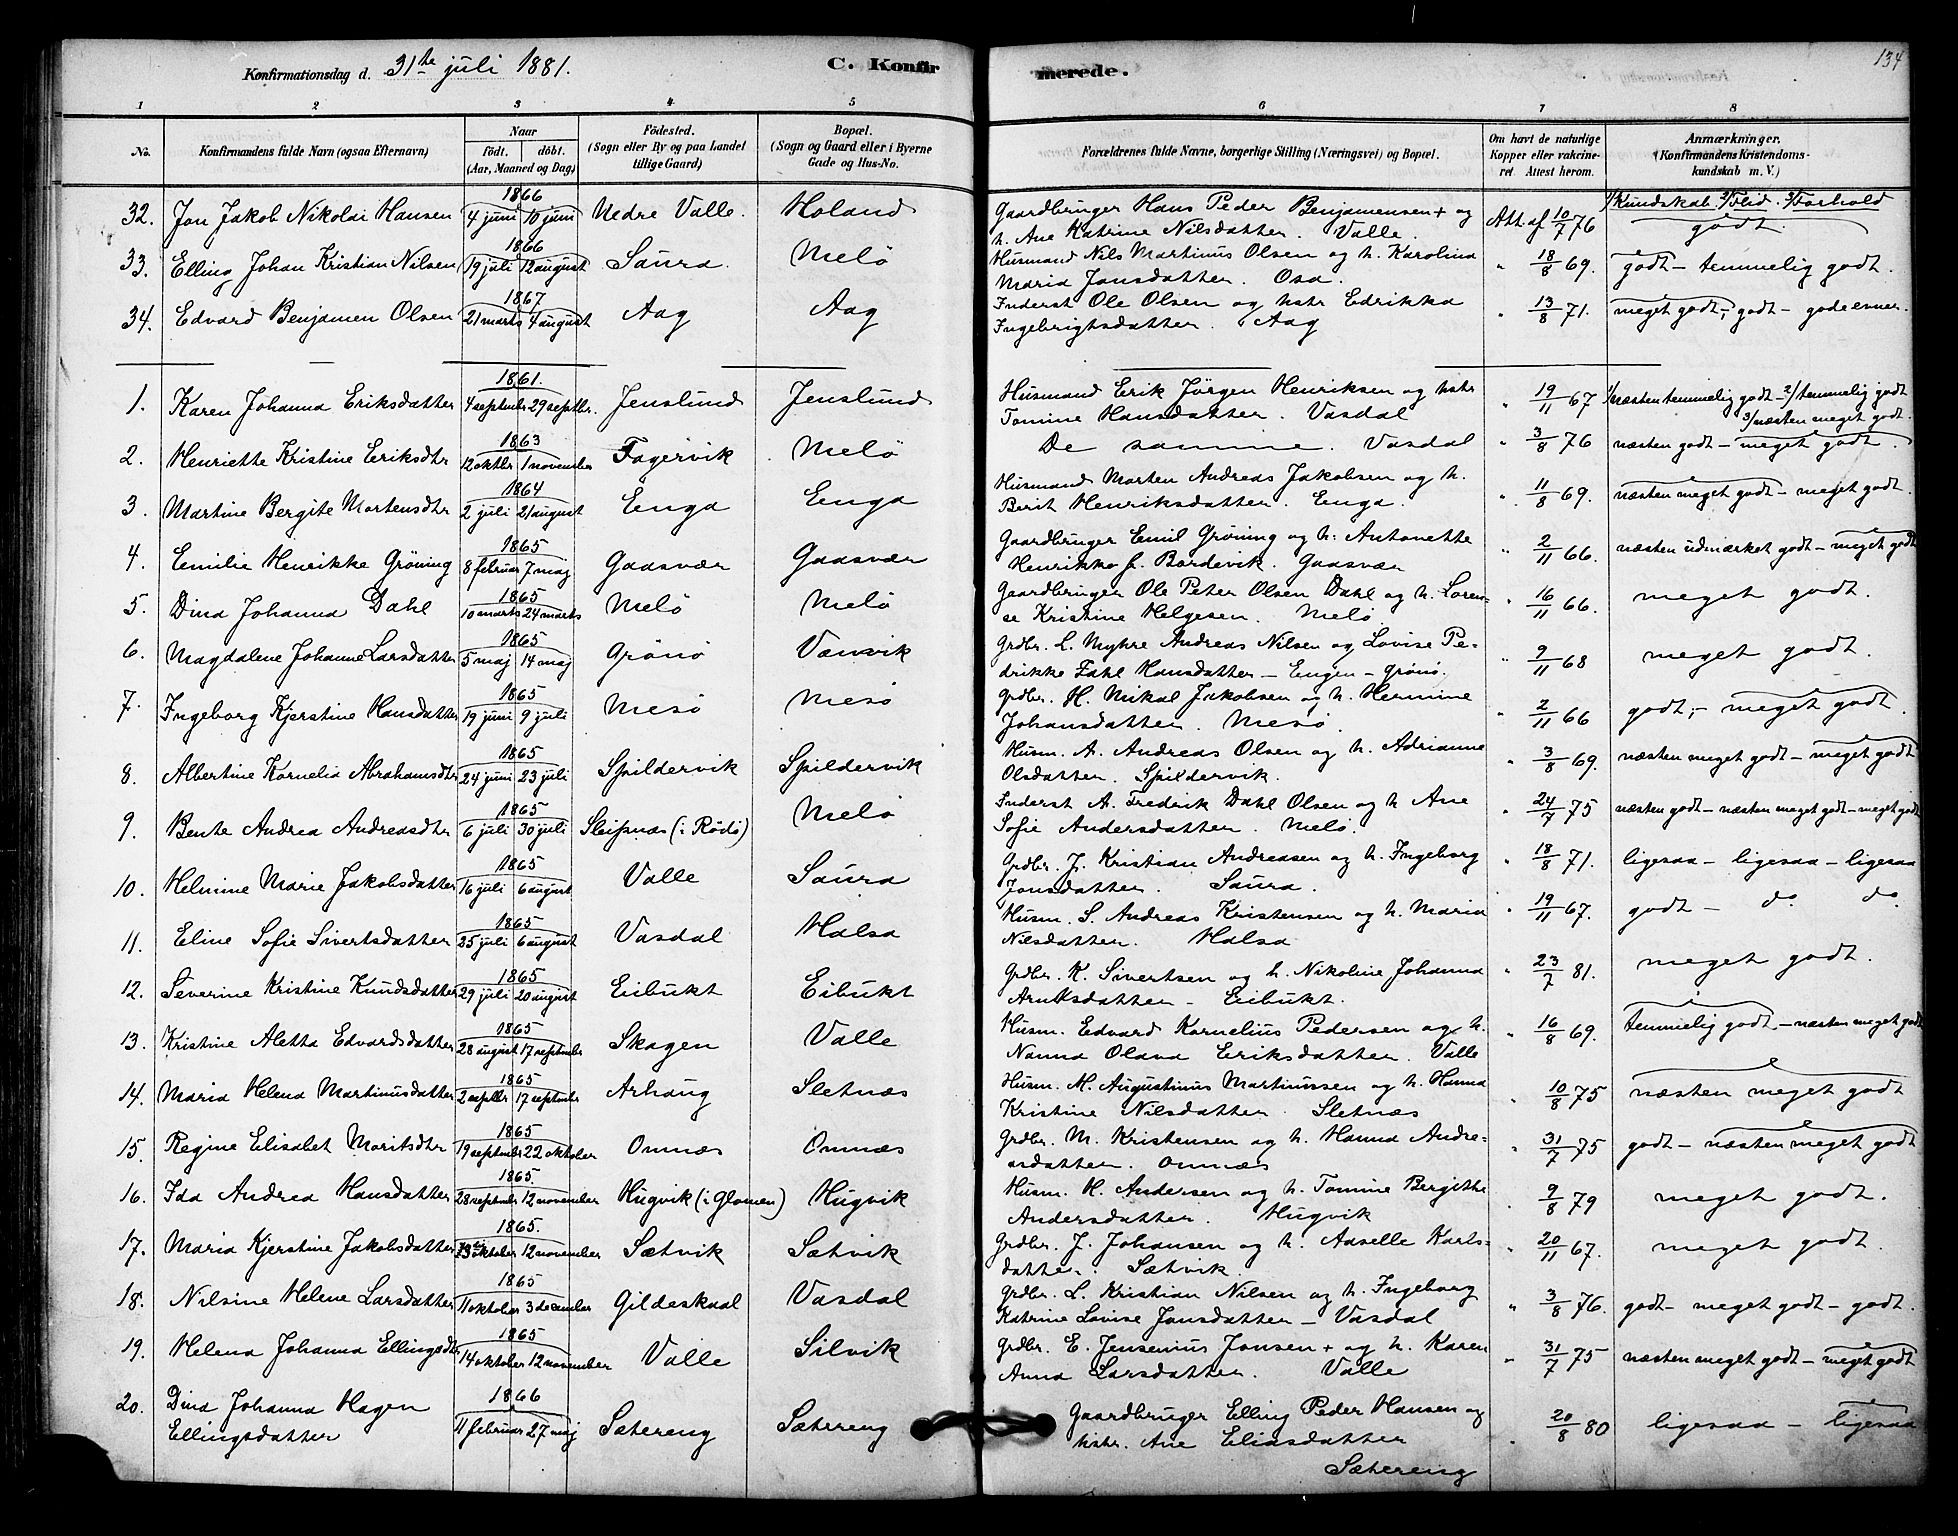 Konfirmationsdag d. 31te juli 1881. C. Konfir
merede. 134
1 2 3 4 5
6 7 8
No. Konfirmandens fulde Navn (ogsaa Efternavn) Naar födt. döbt. (Aar, Maaned og Dag) Födested. (Sogn eller By og paa Landet tillige Gaard) Bopæl. (Sogn og Gaard eller i Byerne Gade og Hus-No.
Forældrenes fulde Navne, borgerlige Stilling (Næringsvei) og Bopæl. Om havt de naturlige Kopper eller vakcineret Attest herom. Anmærkninger. (Konfirmandens Kristendomskundskab m. V.)
1/Kundskab. 2/Flid. 3/Forhold
32. Jon Jakob Nikolai Hansen 1866 4 juni 10 juni Nedre Valle. Holand
Gaardbruger Hans Peder Benjamensen + og
h. Ane Katrine Nilsdatter. Valle. Att. af 10/7 76 godt.
33. Elling Johan Kristian Nilsen 1866 19 juli 12 august Saura. Melö
Husmand Nils Martinus Olsen og h. Karolina
Maria Jonsdatter. Osa. " 18/8 69. godt – temmelig godt.
34. Edvard Benjamen Olsen 1867 21 marts 4 august Aag Aag
Inderst Ole Olsen og hstr Edrikka
Ingebrigtsdatter. Aag " 13/8 71. meget godt, – godt – gode evner.
1. Karen Johanna Eriksdatter 1861. 4 septembr 29 septbr. Jenslund Jenslund
Husmand Erik Jörgen Henriksen og hstr
Tomine Hansdatter. Vasdal " 19/11 67 1/næsten temmelig godt – 2/temmelig godt
3/næsten meget godt.
2. Henriette Kristine Eriksdtr 1863 12 oktbr 1 november Fagervik Melö
De samme. Vasdal " 3/8 76 næsten godt – meget godt.
3. Martine Bergite Mortensdtr 1864 2 juli 21 august Enga Enga
Husmand Morten Andreas Jakobsen og h.
Berit Henriksdatter. Enga. " 11/8 69. næsten meget godt – meget godt.
4. Emilie Henrikke Gröning 1865 8 februar 7 maj Gaasvær Gaasvær
Gaardbruger Emil Gröning og h. Antonette
Henrikke f. Bardevik. Gaasvær " 2/11 66. næsten udmærket godt – meget godt
5. Dina Johanna Dahl 1865 10 marts 24 marts Melö Melö
Gaardbruger Ole Peter Olsen Dahl og h. Loren-
se Kristine Helgesen. Melö " 16/11 66. meget godt.
6. Magdalene Johanne Larsdatter 1865 5 maj 14 maj Grönö Vænvik
Grdbr. L. Myhre Andreas Nilsen og Lovise Pe-
drikke Fahl Hansdatter – Engen – Grönö. " 9/11 68 meget godt.
7. Ingeborg Kjerstine Hansdatter 1865 19 juni 9 juli Mesö Mesö
Grdbr. H. Mikal Jakobsen og h. Hermine
Johansdatter. Mesö. " 2/11 66 godt, – meget godt.
8. Albertine Kornelia Abrahamsdtr 1865 24 juni 23 juli Spildervik Spildervik
Husm. A. Andreas Olsen og h. Adrianne
Olsdatter. Spildervik. " 3/8 69. næsten meget godt – meget godt
9. Bente Andrea Andreasdtr 1865 6 juli 30 juli Sleipnæs (i Rödö) Melö
Inderst A. Fredrik Dahl Olsen og h. Ane
Sofie Andersdatter. Melö. " 24/7 75 næsten godt – næsten meget godt – meget godt
10. Helmine Marie Jakobsdatter 1865 16 juli 6 august Valle Saura
Grdbr. J. Kristian Andreasen og h. Ingeborg
Jonsdatter. Saura. " 18/8 71. ligesaa – ligesaa – ligesaa
11. Eline Sofie Sivertsdatter 1865 25 juli 6 august Vasdal Halsa
Husm. S. Andreas Kristensen og h. Maria
Nilsdatter. Halsa " 19/11 67. godt – do do
12. Severine Kristine Knudsdatter 1865 29 juli 20 august Eibukt Eibukt
Grdbr. K. Sivertsen og h. Nikoline Johanna
Arntsdatter – Eibukt. " 23/7 81. meget godt.
13. Kristine Aletta Edvardsdatter 1865 28 august 17 september Skagen Valle
Husm. Edvard Kornelius Pedersen og h.
Nanna Olava Eriksdatter. Valle " 16/8 69. temmelig godt – næsten meget godt
14. Maria Helena Martinusdatter 1865 2 septbr 17 september Arhaug Sletnæs
Husm. M. Augustinus Martinussen og h. Hanna
Kristine Nilsdatter. Sletnæs " 10/8 75 næsten meget godt
15. Regine Elisabet Moritsdtr 1865 19 septembr 22 oktober Ornnæs Ornnæs
Grdbr. M. Kristensen og h. Hanna Andre-
asdatter. Ornnæs " 31/7 75 godt – næsten meget godt
16. Ida Andrea Hansdatter 1865. 28 septembr 12 november Hugvik (i Glomen) Hugvik
Husm. H. Andersen og h. Tomine Bergitte
Andersdatter. Hugvik " 9/8 79 meget godt.
17. Maria Kjerstine Jakobsdatter 1865. oktober 12 november Sætvik Sætvik
Grdbr. J. Johansen og h. Adselle Karls-
datter. Sætvik. " 20/11 67. meget godt.
18. Nilsine Helene Larsdatter 1865 11 oktober 3 december Gildeskaal Vasdal
Grdbr. L. Kristian Nilsen og h. Ingeborg
Katrine Lovise Jonsdatter – Vasdal " 3/8 76. godt – meget godt – godt.
19. Helena Johanna Ellingsdtr 1865 14 oktober 12 november Valle Silvik
Grdbr. E. Jensenius Jonsen + og h. Karen
Anna Larsdatter. Valle " 31/7 75 næsten meget godt – meget godt
20. Dina Johanna Hagen 1866 11 februar 27 maj Sætereng Sætereng
Ellingsdatter
Gaardbruger Elling Peder Hansen og
hstr. Ane Eliasdatter " 20/8 80 ligesaa – ligesaa
Sætereng